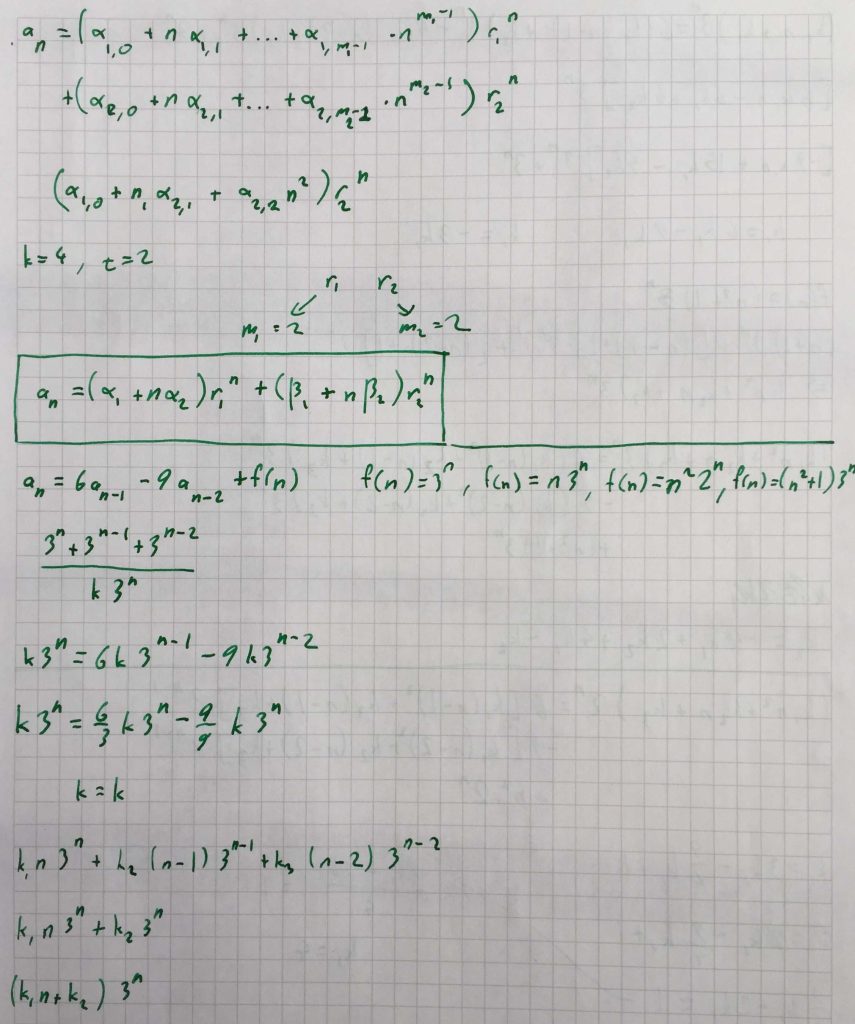 aₙ = (α₁,₀ + n α₁,₁ + ... + α₁,ₘ₁₋₁ · n^(m₁-1)) r₁ⁿ
+ (α₂,₀ + n α₂,₁ + ... + α₂,ₘ₂₋₁ · n^(m₂-1)) r₂ⁿ
(α₁,₀ + n₁ α₂,₁ + α₂,₂ n²) r₂ⁿ
k = 4, t = 2
r₁ r₂
m₁ = 2 m₂ = 2
aₙ = (α₁ + n α₂) r₁ⁿ + (β₁ + n β₂) r₂ⁿ
aₙ = 6aₙ₋₁ - 9aₙ₋₂ + f(n) f(n) = 3ⁿ, f(n) = n 3ⁿ, f(n) = n² 2ⁿ, f(n) = (n²+1) 3ⁿ
3ⁿ + 3ⁿ⁻¹ + 3ⁿ⁻²
k 3ⁿ
k 3ⁿ = 6k 3ⁿ⁻¹ - 9 k 3ⁿ⁻²
k 3ⁿ = 6/3 k 3ⁿ - 9/9 k 3ⁿ
k = k
k₁ n 3ⁿ + k₂ (n-1) 3ⁿ⁻¹ + k₃ (n-2) 3ⁿ⁻²
k₁ n 3ⁿ + k₂ 3ⁿ
(k₁ n + k₂) 3ⁿ